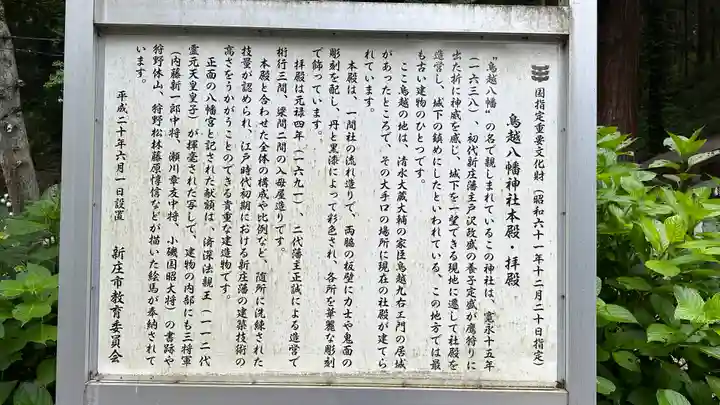 国指定重要文化財(昭和六十一年十二月二十日指定)
鳥越八幡神社本殿・拝殿
"鳥越八幡"の名で親しまれているこの神社は、寛永十五年
(一六三八)初代新庄藩主戸沢政盛の養子定盛が鷹狩りに
出た折に神威を感じ、城下を一望できる現地に遷して社殿を
造営し、城下の鎮めにしたといわれている、この地方では最
も古い建物のひとつです。
ここ鳥越の地は、清水大蔵大輔の家臣鳥越九右エ門の居城
があったところで、その大手口の場所に現在の社殿が建てら
れています。
本殿は、一間社の流れ造りで、両脇の板壁に力士や鬼面の
彫刻を配し、丹と黒漆によって彩色され、各所を華麗な彫刻
で飾っています。
拝殿は元禄四年(一六九一)、二代藩主正誠による造営で
桁行三間、梁間二間の入母屋造りです。
本殿と合わせた全体の構成や比例など、随所に洗練された
技量が認められ、江戸時代初期における新庄藩の建築技術の
高さをうかがうことのできる貴重な建造物です。
正面の八幡宮と記された献額は、済深法親王(一一二代
霊元天皇皇子)が揮毫された写しで、建物の内部にも三将軍
(内藤新一郎中将、瀬川章友中将、小磯国昭大将)の書跡や
狩野休山、狩野松林藤原惇信などが描いた絵馬が奉納されて
います。
平成二十年六月一日設置
新庄市教育委員会